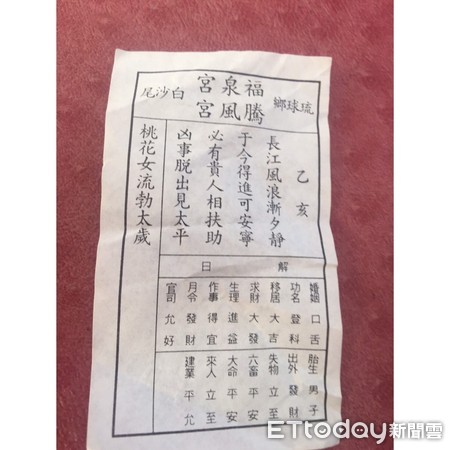 琉球鄉
福泉宮
騰風宮
白沙尾
乙亥
長江風浪漸夕靜
于今得進可安寧
必有貴人相扶助
凶事脫出見太平
桃花女流勃太歲
解日
婚姻口舌
功名登科
移居大吉
求財大發
生理進益
作事得宜
月令發財
官司允好
胎生男子
出外發財
失物立至
六畜平安
大命平安
來人立至
建業平允
ETtoday新聞雲